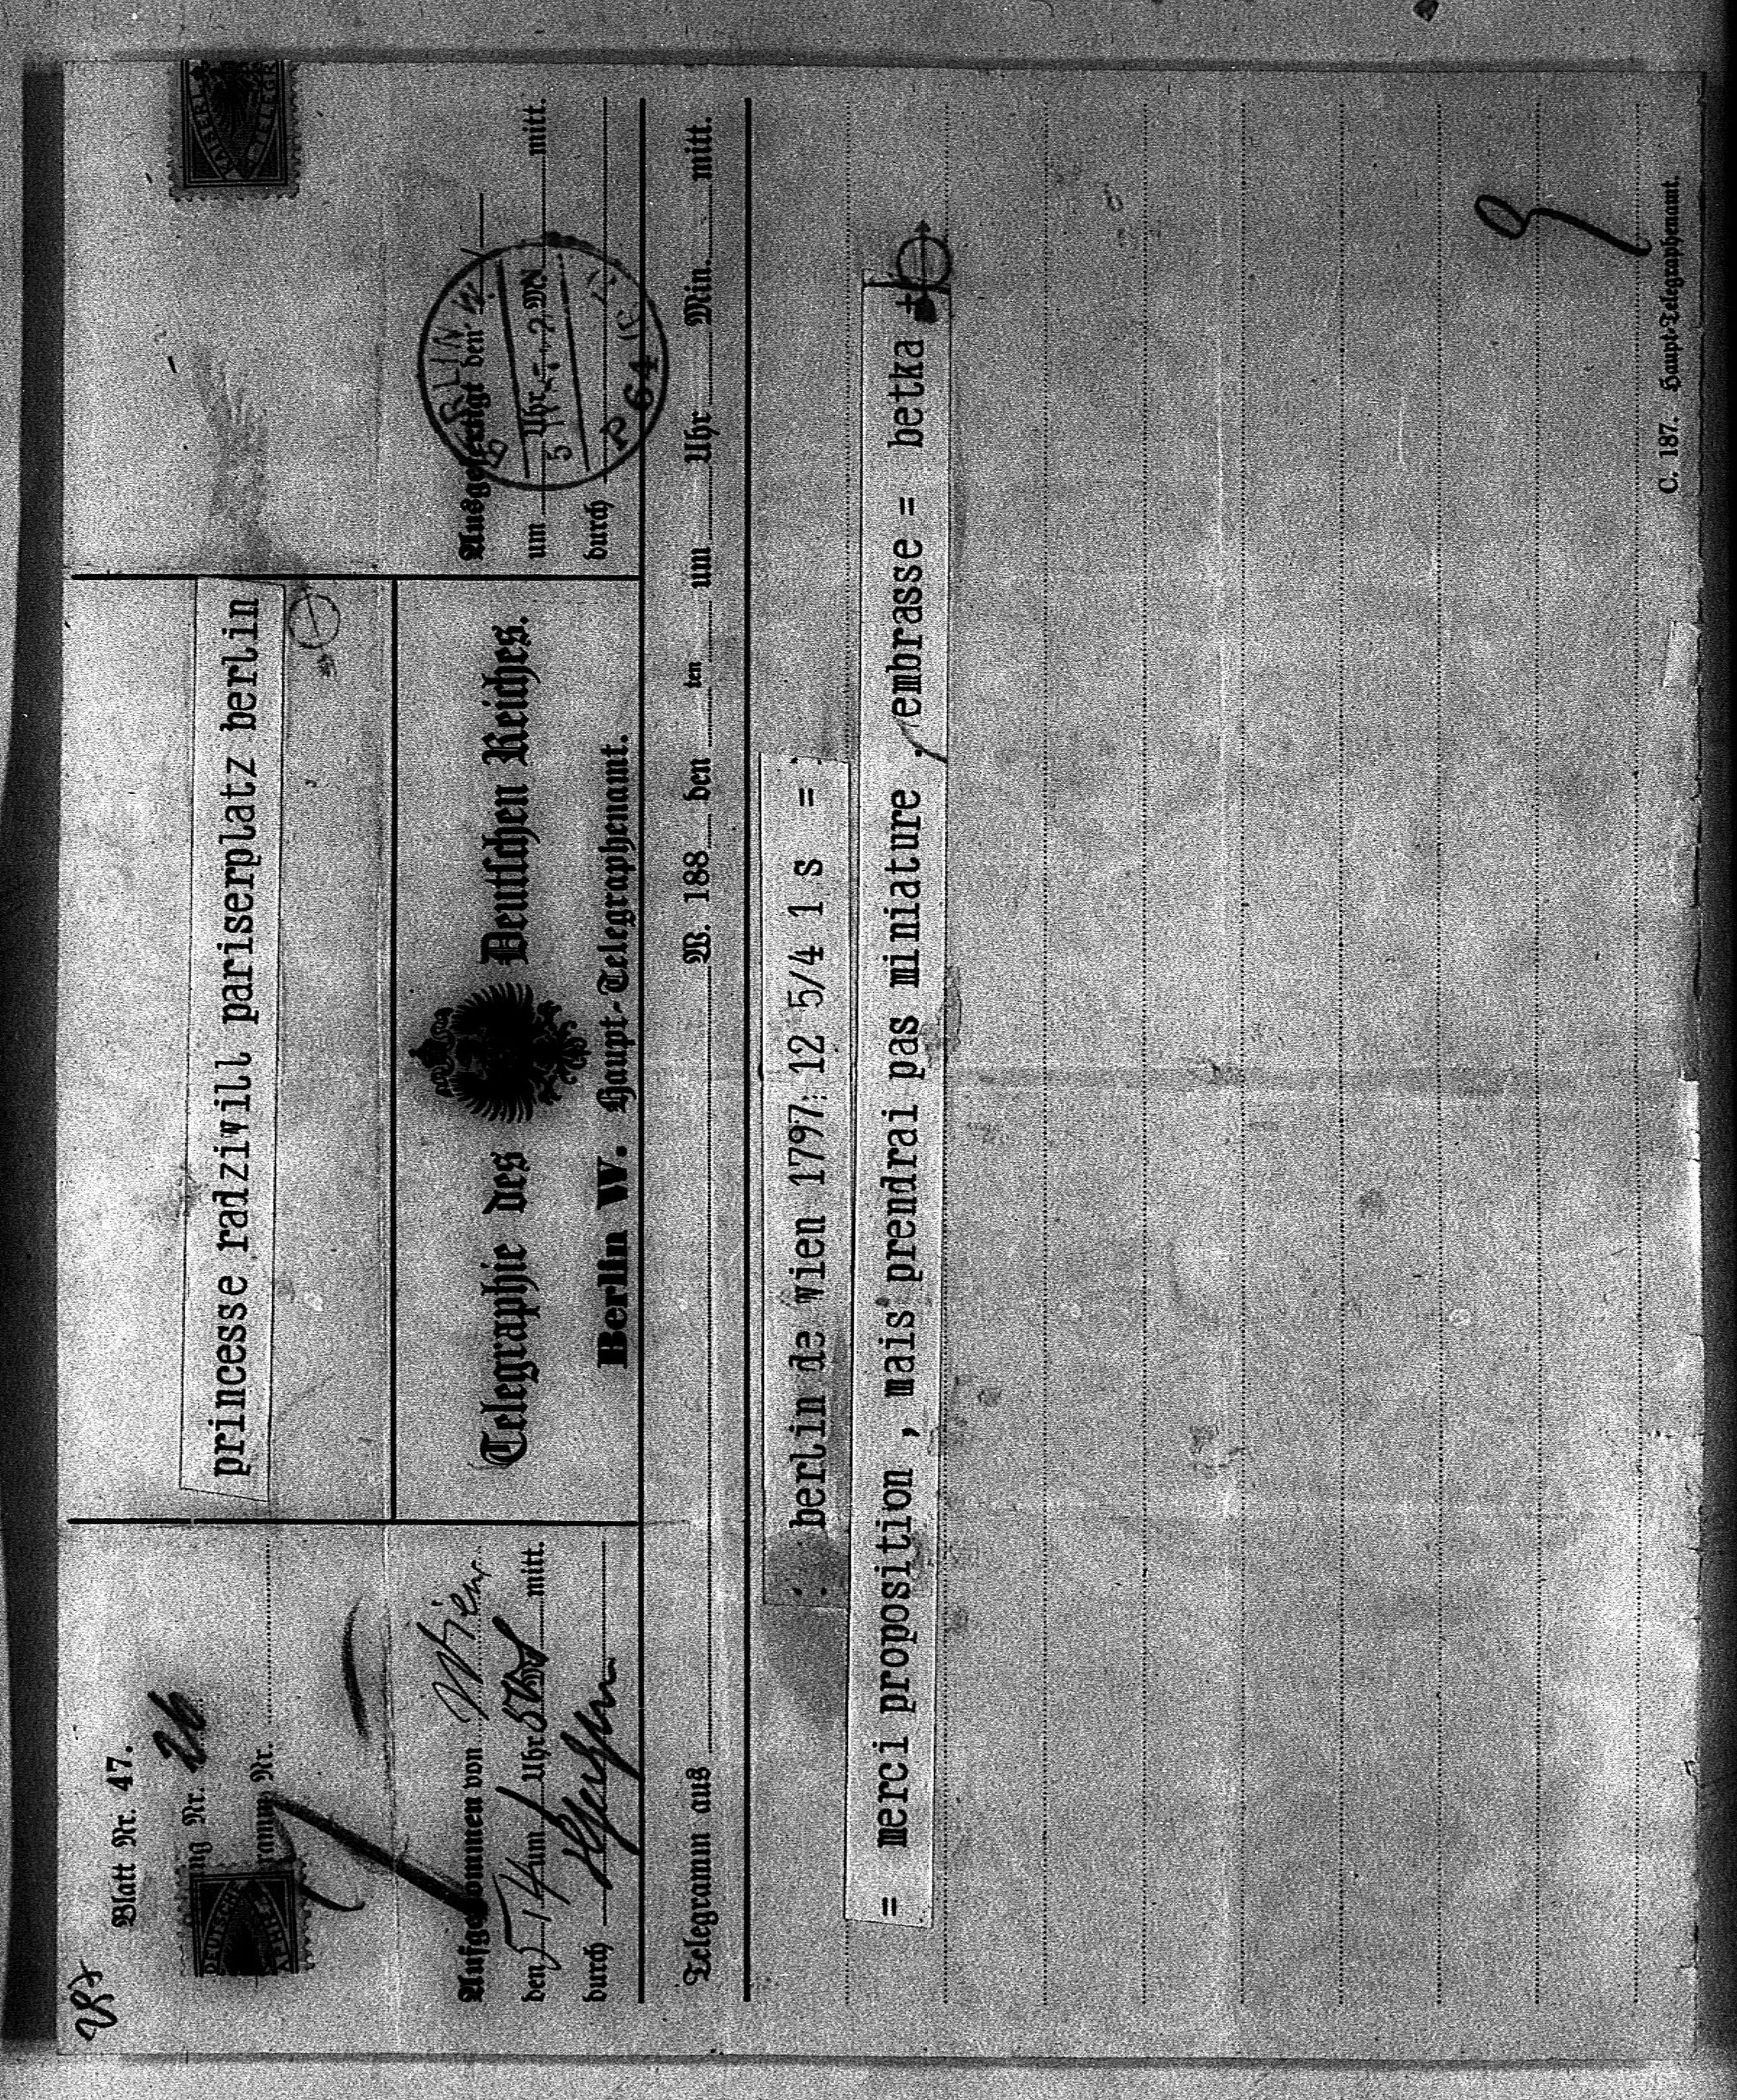 287
Blatt Nr. 47.
Nr. 26
Nr.
DEUTSCHE
princesse radziwill pariserplatz berlin
KAISERL
TELEGR
Aufgenommen von Wien
den 5/4 um Uhr mitt.
durch
Telegraphie des Deutschen Reiches.
Berlin W. Haupt-Telegraphenamt.
Ausgefertigt den
um Uhr mitt.
durch
BERLIN W.
5 IV 2 M
P 64
Telegramm aus W. 188 den ten um Uhr Min. mitt.
berlin de wien 1797: 12 5/4 1 s =
= merci proposition , mais prendrai pas miniature , embrasse = betka +
C. 187. Haupt-Telegraphenamt.